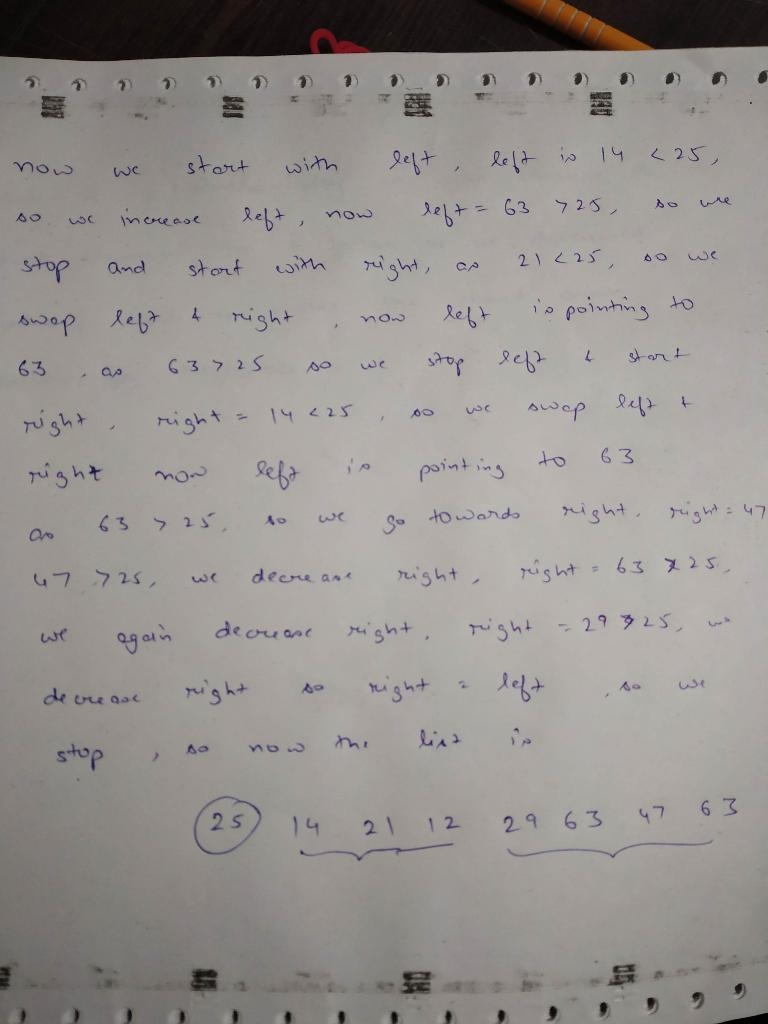 now we start with left, left is 14 < 25,
so we increase left, now left = 63 > 25, so we
stop and start with right, as 21 < 25, so we
swap left & right, now left is pointing to
63, as 63 > 25 so we stop left & start
right, right = 14 < 25, so we swap left &
right now left is pointing to 63
as 63 > 25, so we go towards right, right = 47
47 > 25, we decrease right, right = 63 > 25,
we again decrease right, right = 29 > 25, we
decrease right so right = left, so we
stop, so now the list is
25 14 21 12 29 63 47 63